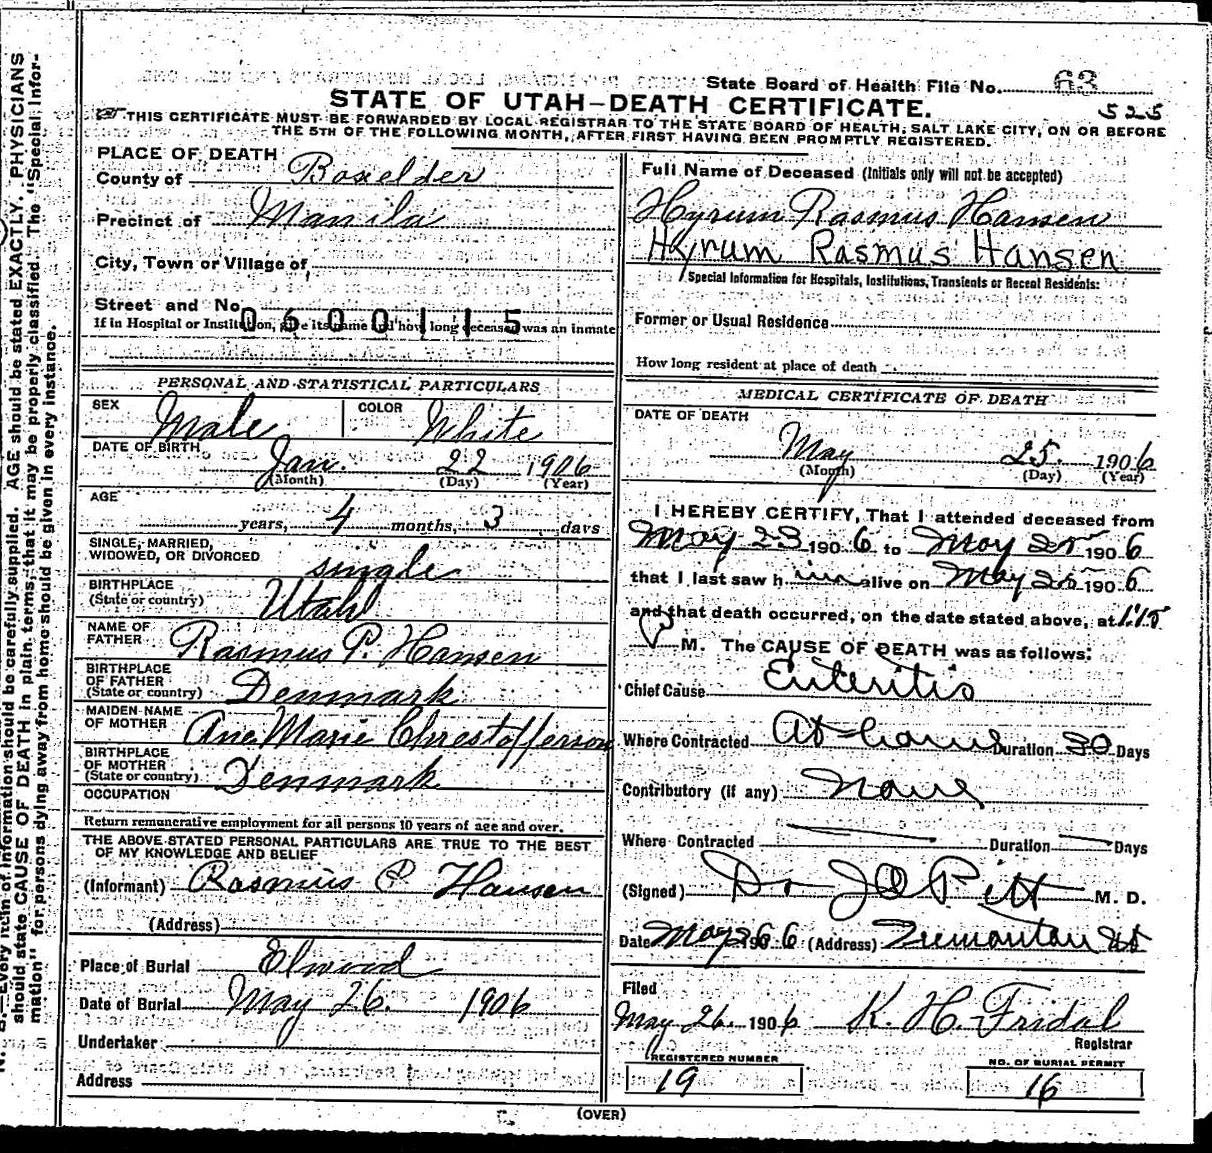 State Board of Health File No. 63
STATE OF UTAH—DEATH CERTIFICATE.
525
THIS CERTIFICATE MUST BE FORWARDED BY LOCAL REGISTRAR TO THE STATE BOARD OF HEALTH, SALT LAKE CITY, ON OR BEFORE
THE 5TH OF THE FOLLOWING MONTH, AFTER FIRST HAVING BEEN PROMPTLY REGISTERED.
PLACE OF DEATH
County of Boxelder
Precinct of Manila
City, Town or Village of
Street and No.
0600115
If in Hospital or Institution, give its name and how long deceased was an inmate
PERSONAL AND STATISTICAL PARTICULARS
SEX Male COLOR White
DATE OF BIRTH Jan. 22 1906
(Month) (Day) (Year)
AGE
years, 4 months, 3 days
SINGLE, MARRIED,
WIDOWED, OR DIVORCED single
BIRTHPLACE
(State or country) Utah
NAME OF
FATHER Rasmus P. Hansen
BIRTHPLACE
OF FATHER
(State or country) Denmark
MAIDEN NAME
OF MOTHER Ane Marie Chrestofferson
BIRTHPLACE
OF MOTHER
(State or country) Denmark
OCCUPATION
Return remunerative employment for all persons 10 years of age and over.
THE ABOVE STATED PERSONAL PARTICULARS ARE TRUE TO THE BEST
OF MY KNOWLEDGE AND BELIEF
(Informant) Rasmus P Hansen
(Address)
Place of Burial Elwood
Date of Burial May 26. 1906
Undertaker
Address
Full Name of Deceased (Initials only will not be accepted)
Hyrum Rasmus Hansen
Hyrum Rasmus Hansen
Special Information for Hospitals, Institutions, Transients or Recent Residents:
Former or Usual Residence
How long resident at place of death
MEDICAL CERTIFICATE OF DEATH
DATE OF DEATH
May 25. 1906
(Month) (Day) (Year)
I HEREBY CERTIFY, That I attended deceased from
May 23 1906 to May 25 1906
that I last saw him alive on May 25 1906
and that death occurred, on the date stated above, at 1:15
P M. The CAUSE OF DEATH was as follows:
Chief Cause Enteritis
Where Contracted At home Duration 30 Days
Contributory (if any) None
Where Contracted Duration Days
(Signed) Dr J O Pitt M. D.
Date May 26 1906 (Address) Tremonton Ut
Filed
May 26. 1906 K. H. Fridal
Registrar
REGISTERED NUMBER
19
NO. OF BURIAL PERMIT
16
(OVER)
N. B.—Every item of information should be carefully supplied. AGE should be stated EXACTLY. PHYSICIANS
should state CAUSE OF DEATH in plain terms, that it may be properly classified. The "Special Infor-
mation" for persons dying away from home should be given in every instance.